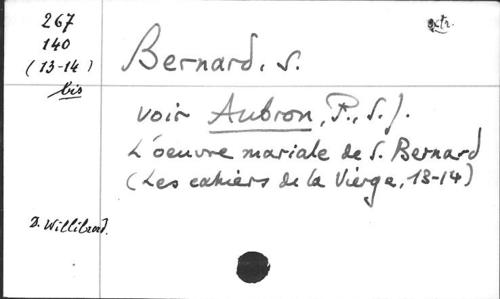 267
140
(13-14)
bis
extr.
Bernard, S.
voir Aubron, P., S.J.
L'oeuvre mariale de S. Bernard
(Les cahiers de la Vierge, 13-14)
D. Willibrord.